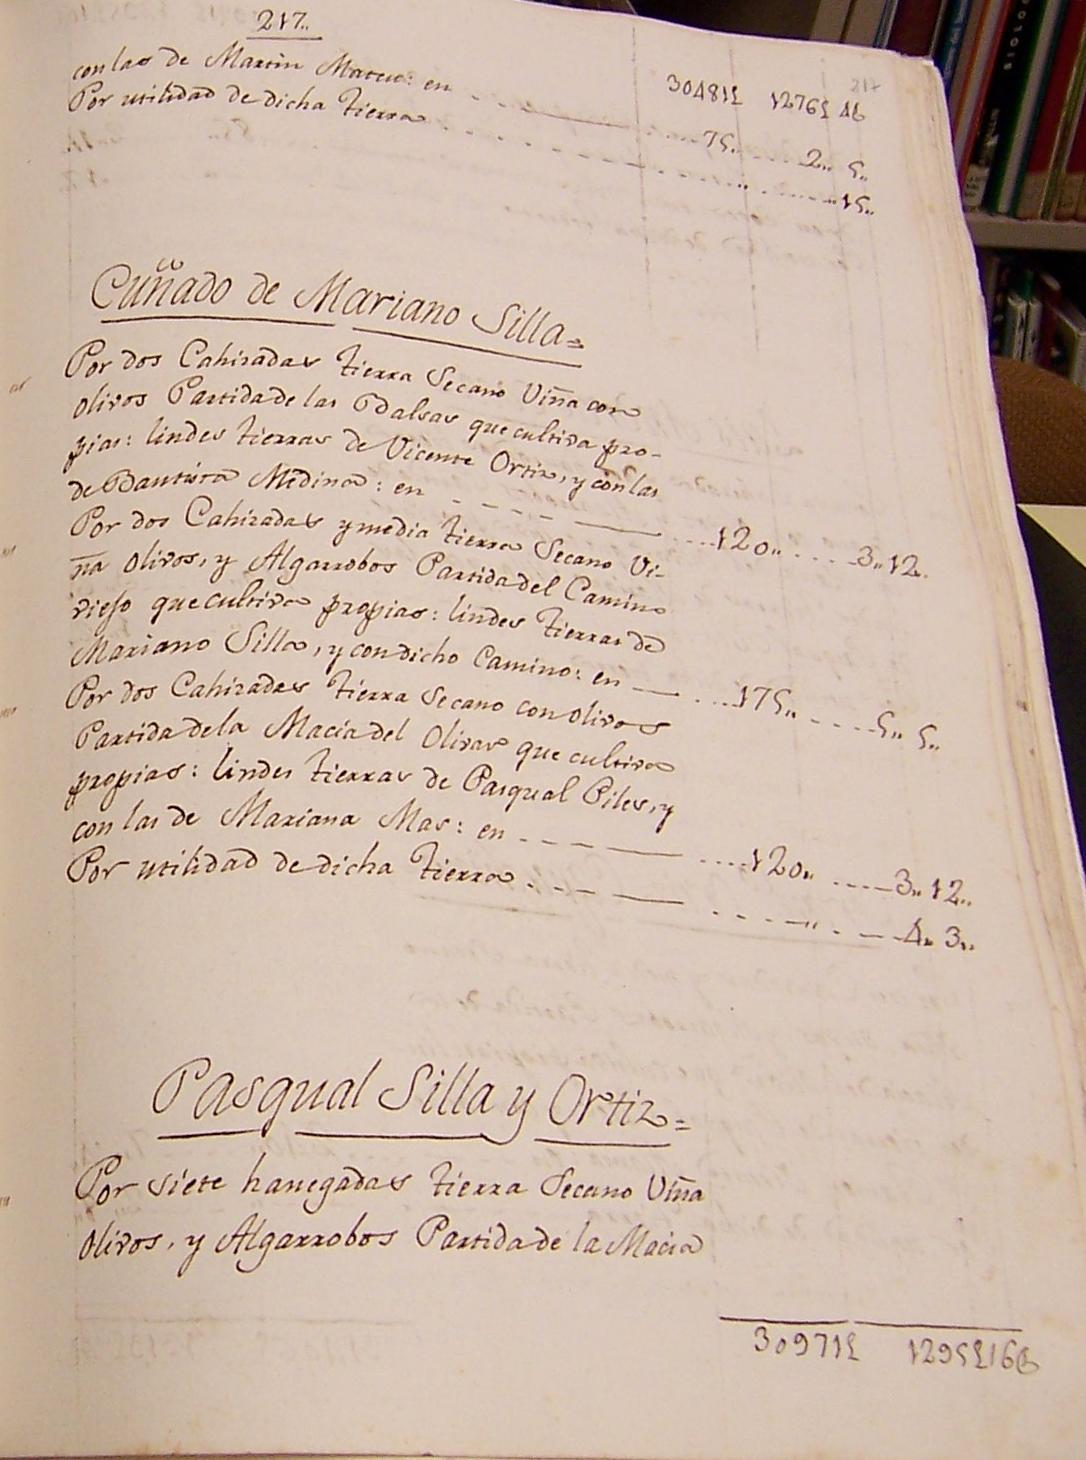 217.
217
con las de Martin Mateu: en 75.. 2.. 5..
30481£ 1276£ 4$
Por utilidad de dicha tierra 15..
Cuñado de Mariano Silla=
Por dos Cahizadas tierra Secano Viña con
Olivos Partida de las Balsas que cultiva pro-
pias: lindes tierras de Vicente Ortiz, y con las
de Bautista Medina: en 120.. 3..12..
Por dos Cahizadas y media tierra Secano Vi-
ña Olivos, y Algarrobos Partida del Camino
viejo que cultiva propias: lindes tierras de
Mariano Silla, y con dicho Camino: en 175.. 5.. 5..
Por dos Cahizadas tierra Secano con olivos
Partida de la Macia del Olivar que cultiva
propias: lindes tierras de Pasqual Piles, y
con las de Mariana Mas: en 120.. 3..12..
Por utilidad de dicha tierra 4.. 3..
Pasqual Silla y Ortiz=
Por siete hanegadas tierra Secano Viña
Olivos, y Algarrobos Partida de la Macia
30971£ 1295£16$